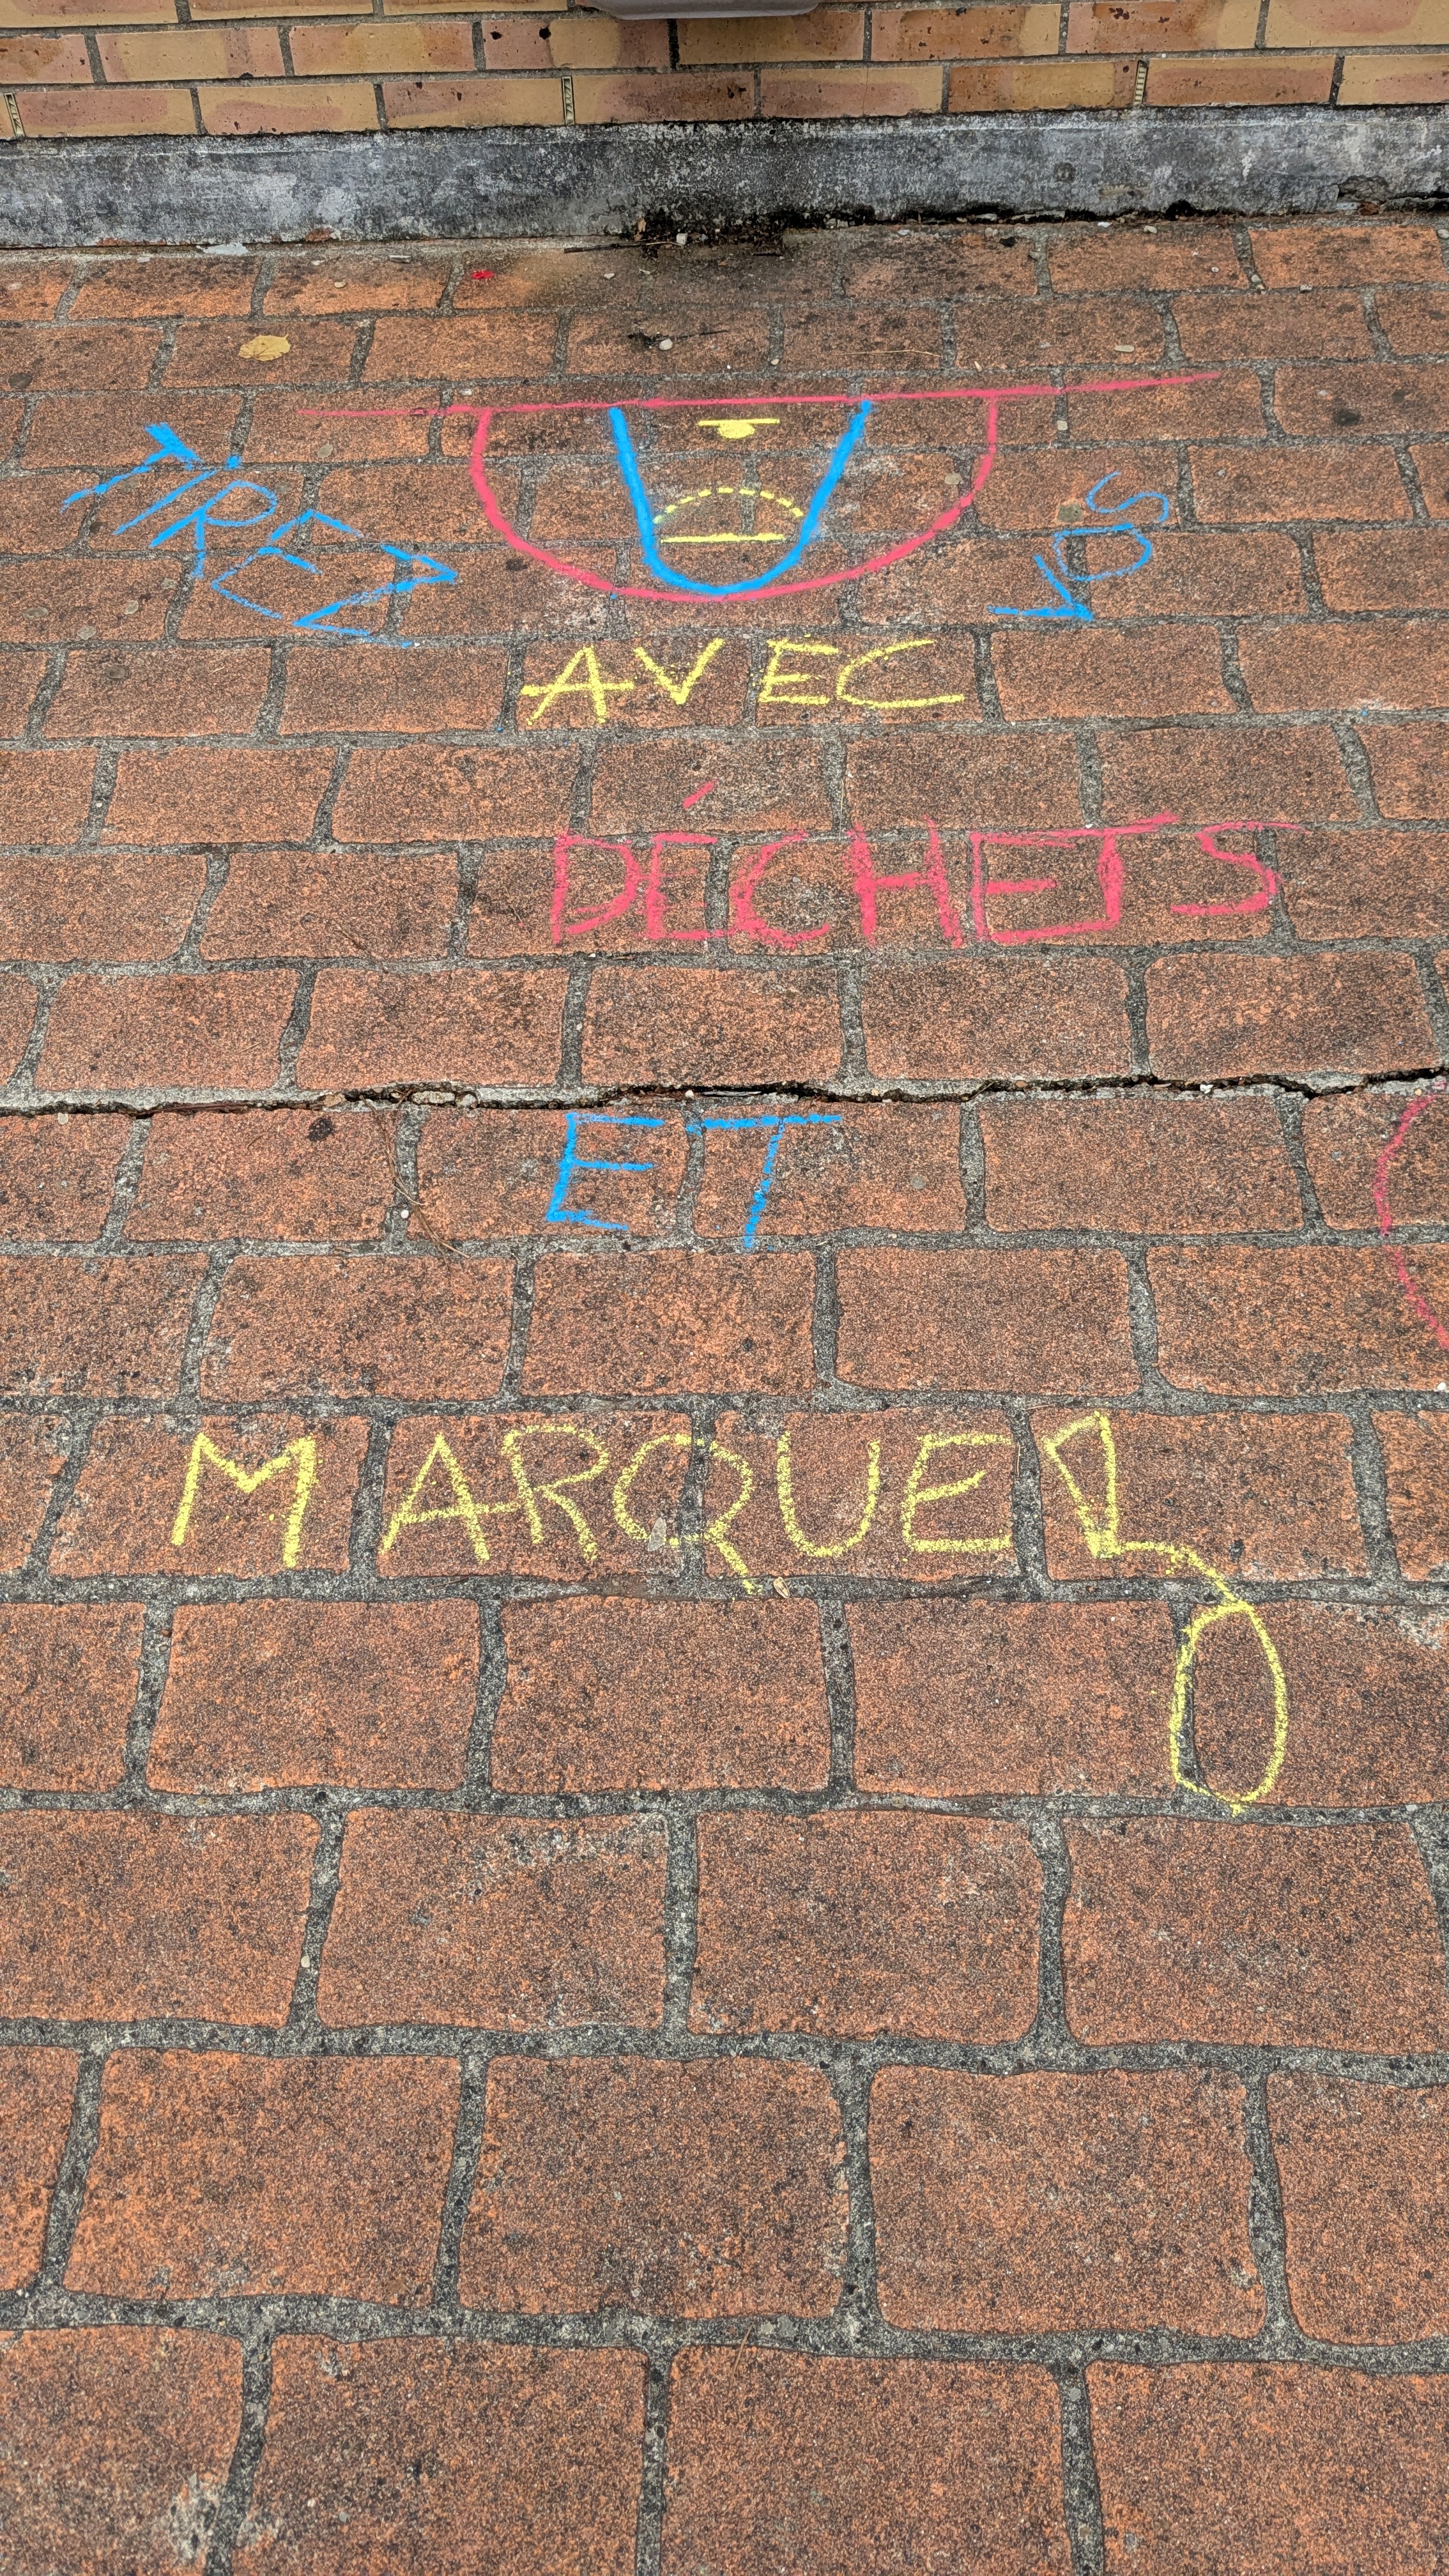 TIREZ
AVEC
VOS
DÉCHETS
ET
MARQUEZ